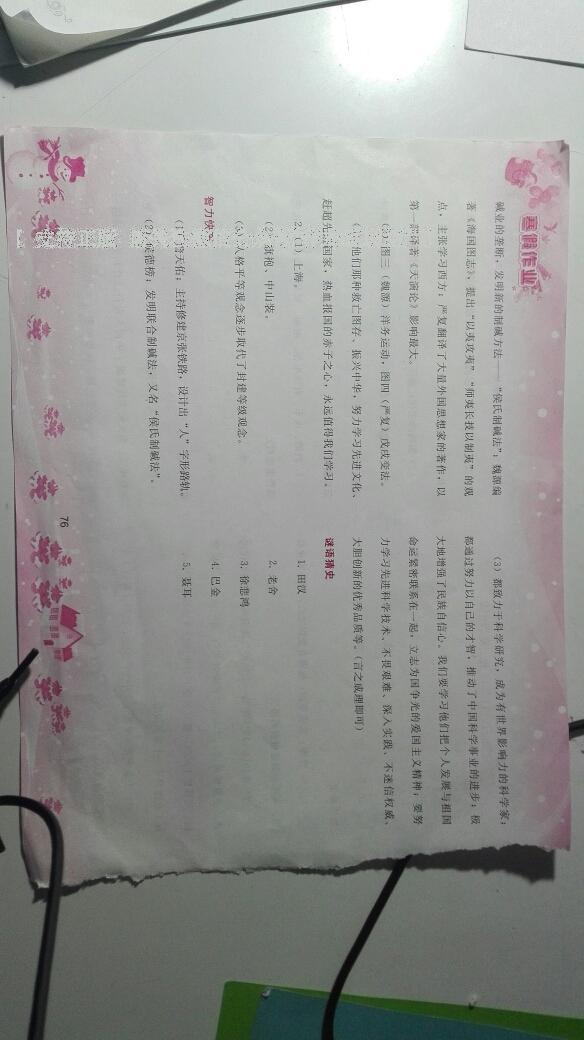 寒假作业
碱业的垄断，发明新的制碱方法——“侯氏制碱法”；魏源编
著《海国图志》，提出“以夷攻夷”“师夷长技以制夷”的观
点，主张学习西方；严复翻译了大量外国思想家的著作，以
第一部译著《天演论》影响最大。
图三（魏源）洋务运动，图四（严复）戊戌变法。
他们那种救亡图存、振兴中华，努力学习先进文化、
赶超先进国家，热血报国的赤子之心，永远值得我们学习。
2．（1）上海。
（2）旗袍 中山装。
（3）人格平等观念逐步取代了封建等级观念。
智力快
（1）詹天佑；主持修建京张铁路，设计出“人”字形路轨。
（2）侯德榜；发明联合制碱法，又名“侯氏制碱法”。
（3）都致力于科学研究，成为有世界影响力的科学家；
都通过努力以自己的才智，推动了中国科学事业的进步；极
大地增强了民族自信心。我们要学习他们把个人发展与祖国
命运紧密联系在一起，立志为国争光的爱国主义精神；要努
力学习先进科学技术、不畏艰难、深入实践、不迷信权威、
大胆创新的优秀品质等。（言之成理即可）
谜语猜史
1．田汉
2．老舍
3．徐悲鸿
4．巴金
5．聂耳
76